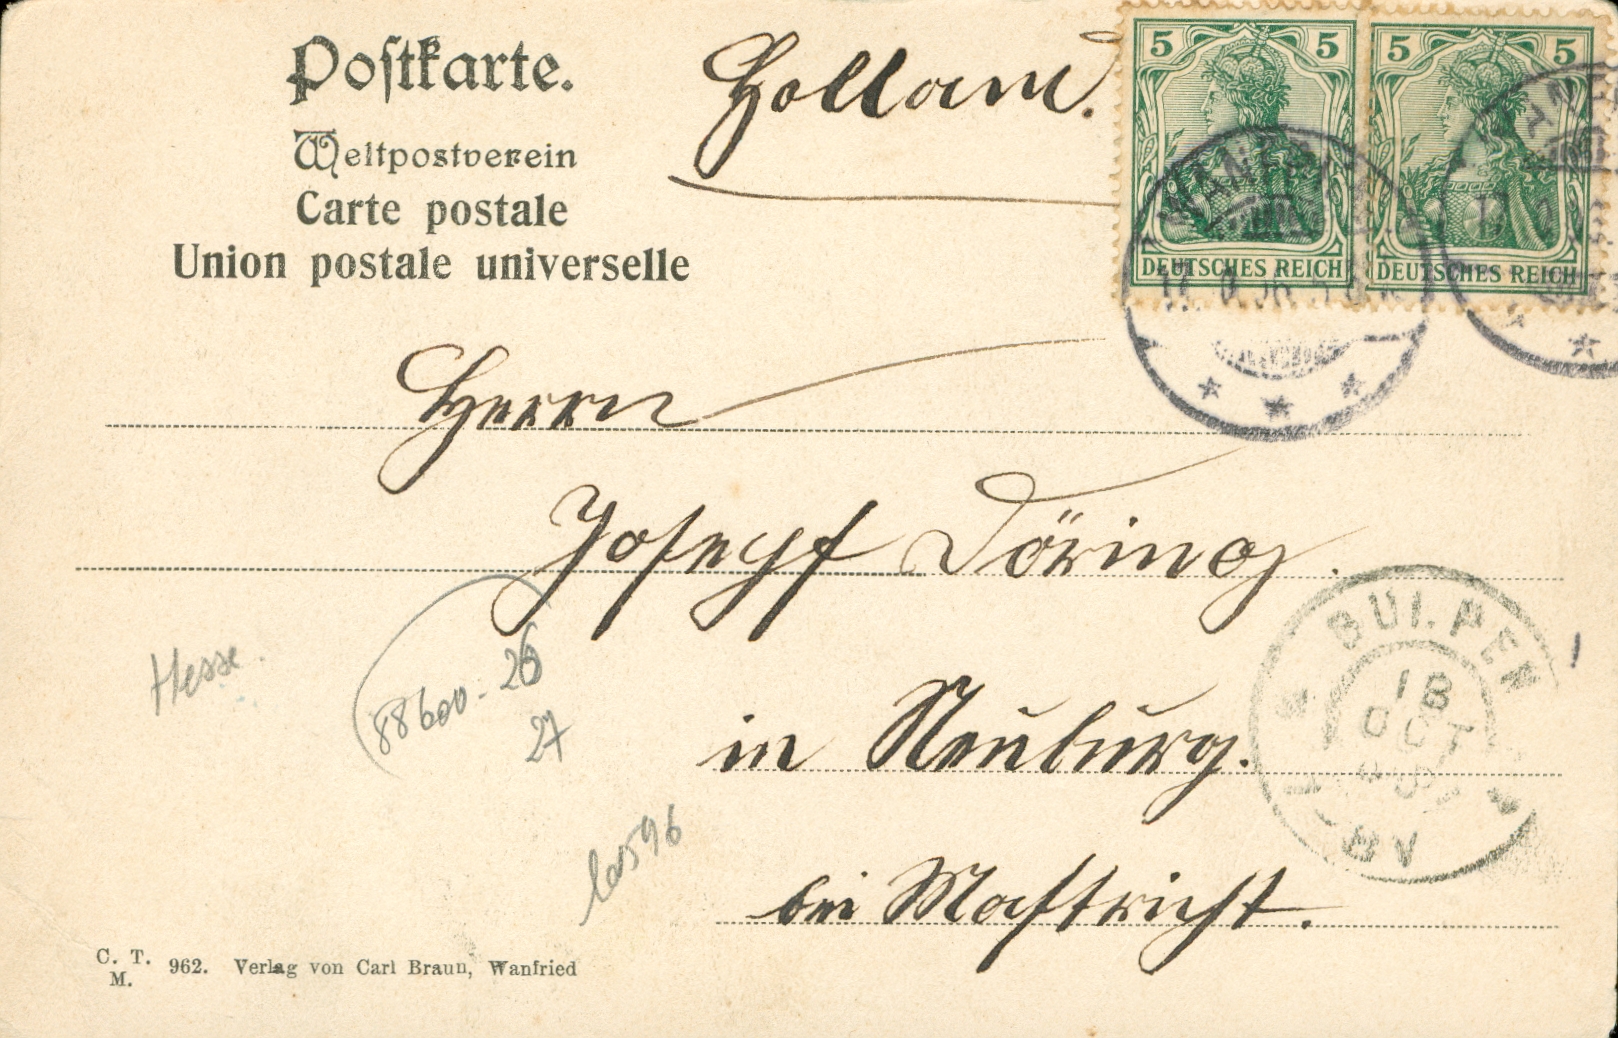 Postkarte.
Weltpostverein
Carte postale
Union postale universelle
Holland.
5 5
DEUTSCHES REICH
5 5
DEUTSCHES REICH
Herrn
Joseph Döring.
in Neuburg.
bei Mastricht.
BULPEN
18
OCT
Hesse.
88600-26
27
C. T. M. 962. Verlag von Carl Braun, Wanfried